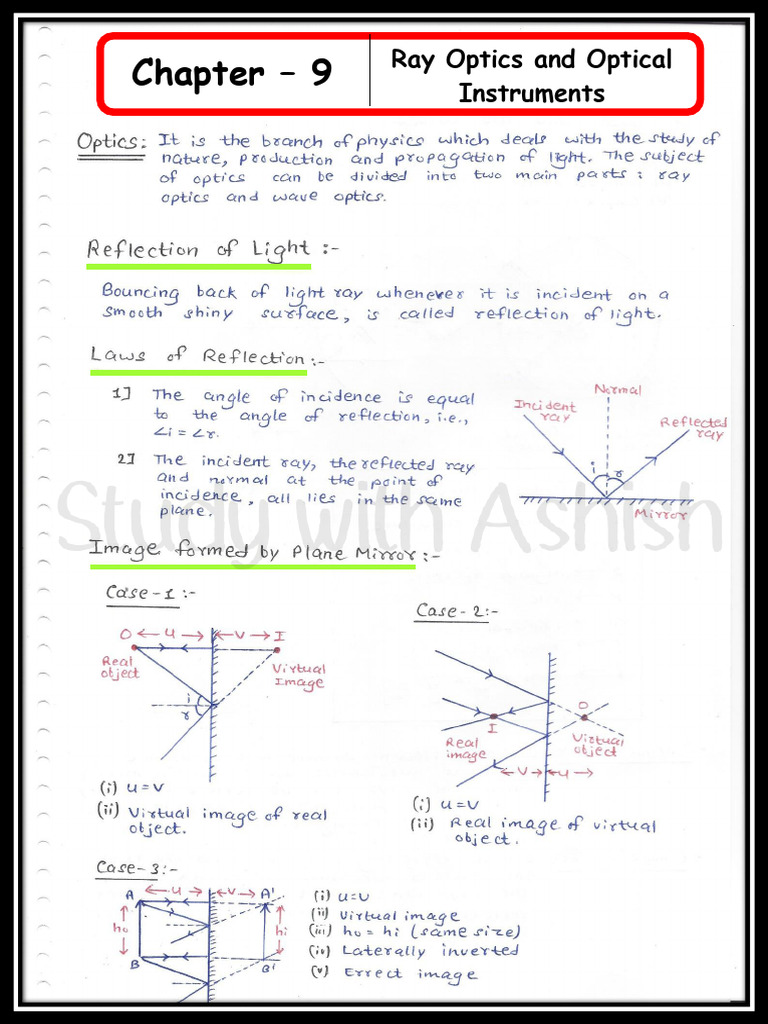 Chapter – 9
Ray Optics and Optical
Instruments
Optics: It is the branch of physics which deals with the study of
nature, production and propagation of light. The subject
of optics can be divided into two main parts: ray
optics and wave optics.
Reflection of Light :-
Bouncing back of light ray whenever it is incident on a
smooth shiny surface, is called reflection of light.
Laws of Reflection:-
1] The angle of incidence is equal
to the angle of reflection, i.e.,
∠i = ∠r.
2] The incident ray, the reflected ray
and normal at the point of
incidence, all lies in the same
plane.
Normal
Incident
ray
Reflected
ray
i
r
Mirror
Study with Ashish
Image formed by Plane Mirror:-
Case-1:-
O ← u → ← v → I
Real
object
Virtual
Image
i
r
(i) u=v
(ii) Virtual image of real
object.
Case-2:-
O
I
Real
image
Virtual
object
v
u
(i) u=v
(ii) Real image of virtual
object.
Case-3:-
A ← u → ← v → A'
ho
hi
B
B'
(i) u=v
(ii) Virtual image
(iii) ho = hi (same size)
(iv) Laterally inverted
(v) Errect image